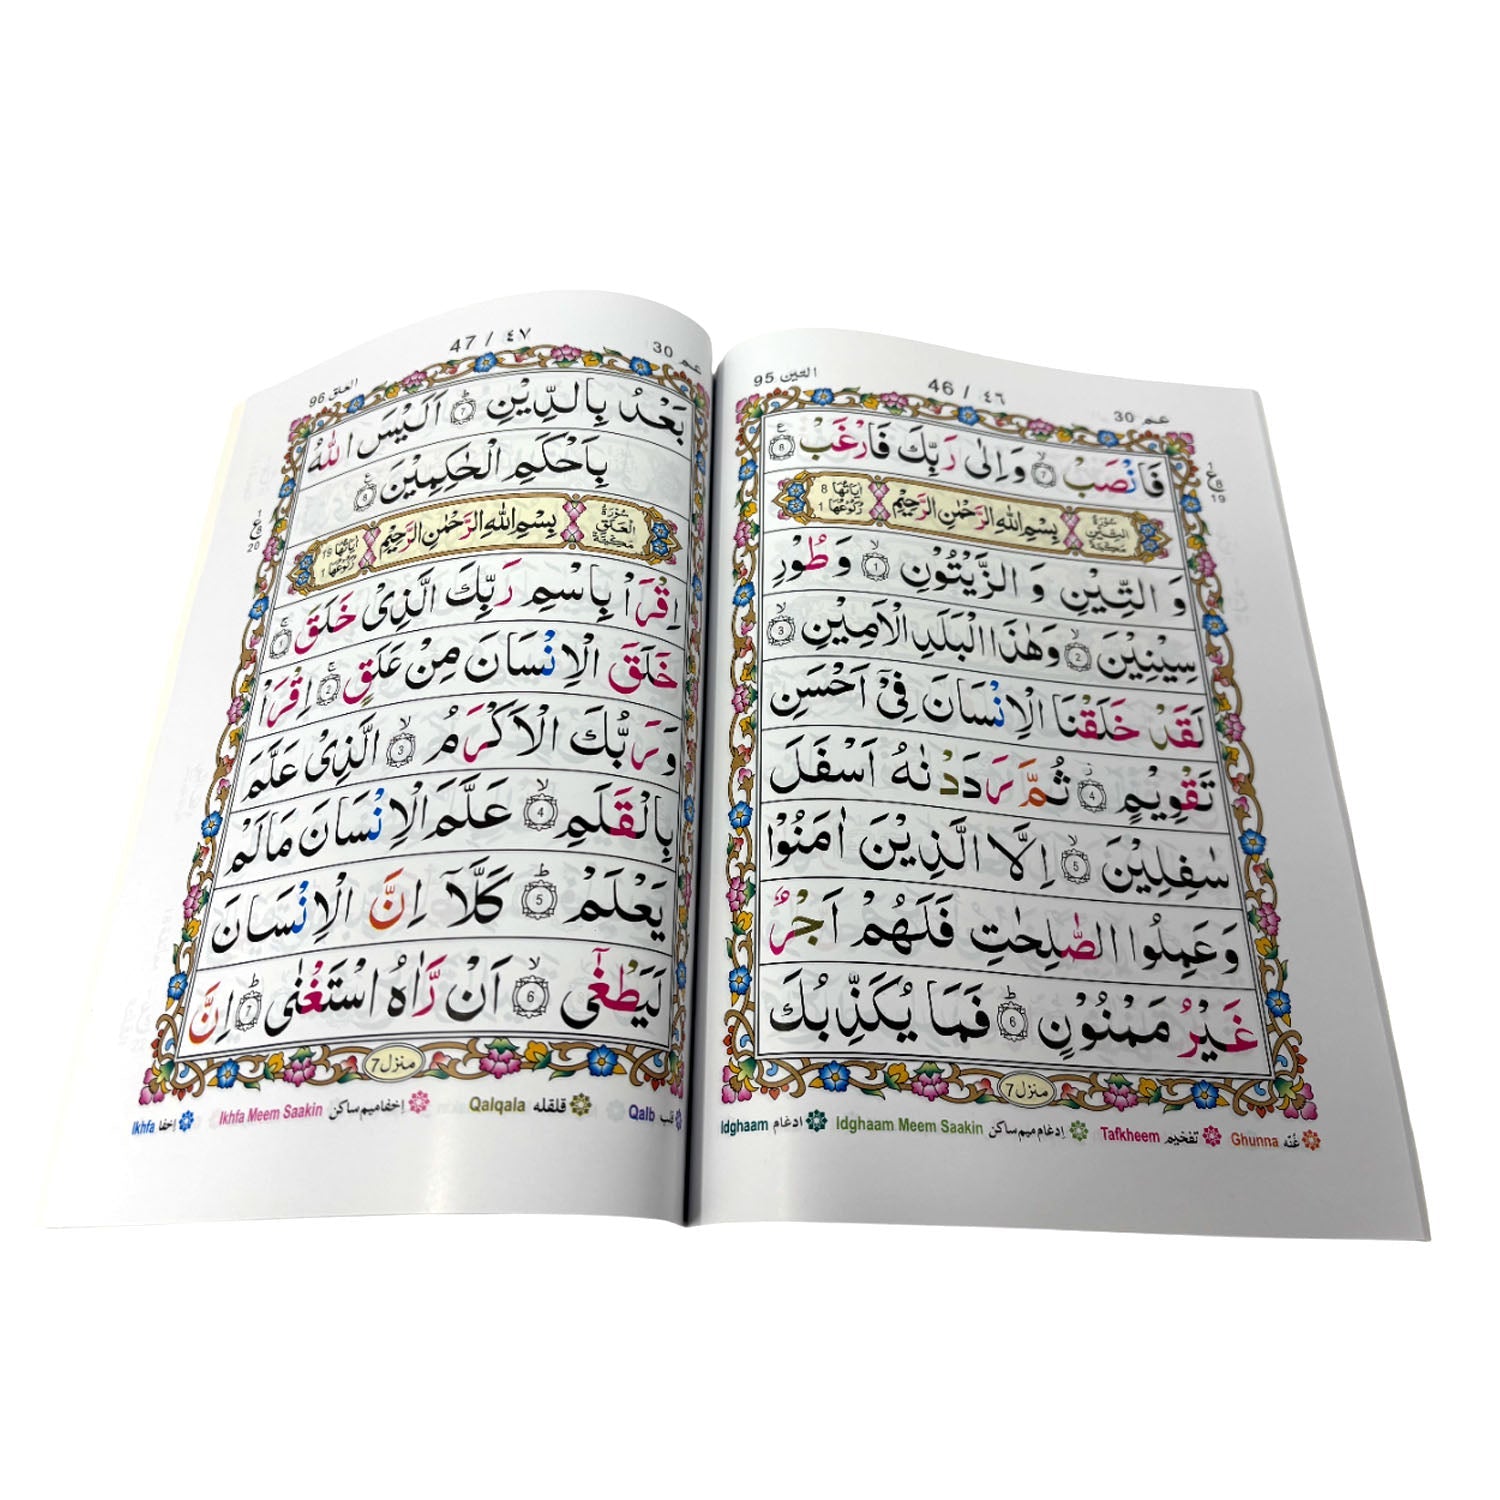 التين 95
46 / ٤٦
عم 30
فَانْصَبْ ۙ 7 وَاِلٰى رَبِّكَ فَارْغَبْ ۧ 8
ع 8 19
سُوْرَةُ التِّيْنِ مَكِّيَّةٌ
بِسْمِ اللّٰهِ الرَّحْمٰنِ الرَّحِيْمِ
اٰيَاتُهَا 8 رُكُوْعُهَا 1
وَ التِّيْنِ وَ الزَّيْتُوْنِ ۙ 1 وَ طُوْرِ
سِيْنِيْنَ ۙ 2 وَهٰذَا الْبَلَدِ الْاَمِيْنِ ۙ 3
لَقَدْ خَلَقْنَا الْاِنْسَانَ فِيْٓ اَحْسَنِ
تَقْوِيْمٍ ؗ 4 ثُمَّ رَدَدْنٰهُ اَسْفَلَ
سٰفِلِيْنَ ۙ 5 اِلَّا الَّذِيْنَ اٰمَنُوْا
وَعَمِلُوا الصّٰلِحٰتِ فَلَهُمْ اَجْرٌ
غَيْرُ مَمْنُوْنٍ ؕ 6 فَمَا يُكَذِّبُكَ
منزل 7
غُنّه Ghunna تفخيم Tafkheem اِدغام ميم ساكن Idghaam Meem Saakin ادغام Idghaam
العلق 96
47 / ٤٧
عم 30
بَعْدُ بِالدِّيْنِ ؕ 7 اَلَيْسَ اللّٰهُ
بِاَحْكَمِ الْحٰكِمِيْنَ ۧ 8
ع 8 20
سُوْرَةُ الْعَلَقِ مَكِّيَّةٌ
بِسْمِ اللّٰهِ الرَّحْمٰنِ الرَّحِيْمِ
اٰيَاتُهَا 19 رُكُوْعُهَا 1
اِقْرَاْ بِاسْمِ رَبِّكَ الَّذِيْ خَلَقَ ۚ 1
خَلَقَ الْاِنْسَانَ مِنْ عَلَقٍ ۚ 2 اِقْرَاْ
وَرَبُّكَ الْاَكْرَمُ ۙ 3 الَّذِيْ عَلَّمَ
بِالْقَلَمِ ۙ 4 عَلَّمَ الْاِنْسَانَ مَالَمْ
يَعْلَمْ ؕ 5 كَلَّآ اِنَّ الْاِنْسَانَ
لَيَطْغٰٓى ۙ 6 اَنْ رَّاٰهُ اسْتَغْنٰى ؕ 7 اِنَّ
منزل 7
قلب Qalb قلقله Qalqala اِخفاميم ساكن Ikhfa Meem Saakin اِخفا Ikhfa